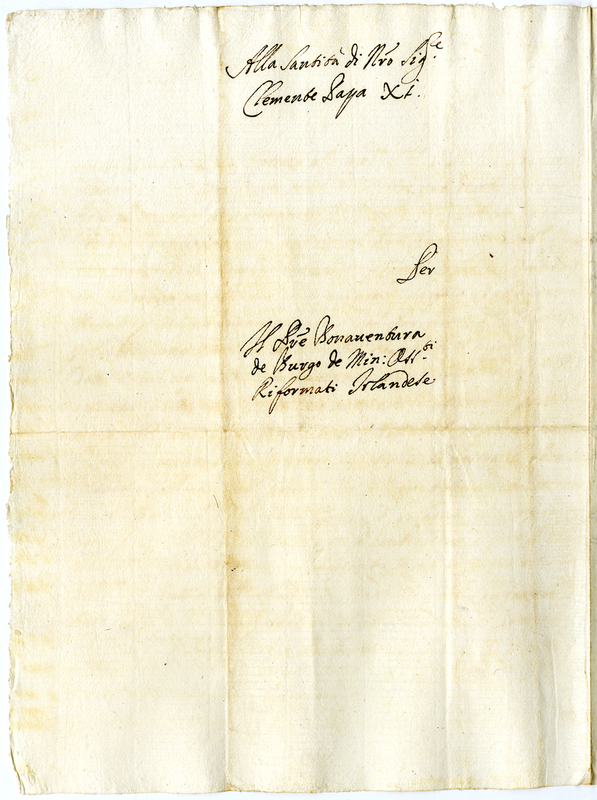 Alla Santità di Nrō Sig.re
Clemente Papa XI.
Per
Il Prē Bonaventura
de Burgo de Min: Oss.ti
Riformati Irlandese